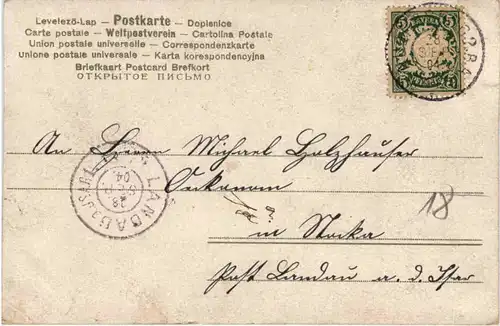 Levelező-Lap — Postkarte — Dopisnice
Carte postale — Weltpostverein — Cartolina Postale
Union postale universelle — Correspondenzkarte
Unione postale universale — Karta korespondencyjna
Briefkaart Postcard Brefkort
ОТКРЫТОЕ ПИСЬМО
5 BAYERN 5
An Herrn Michael Holzhauser
Oekonom
LANDAU
04
18
in
Post Landau a. d. Isar